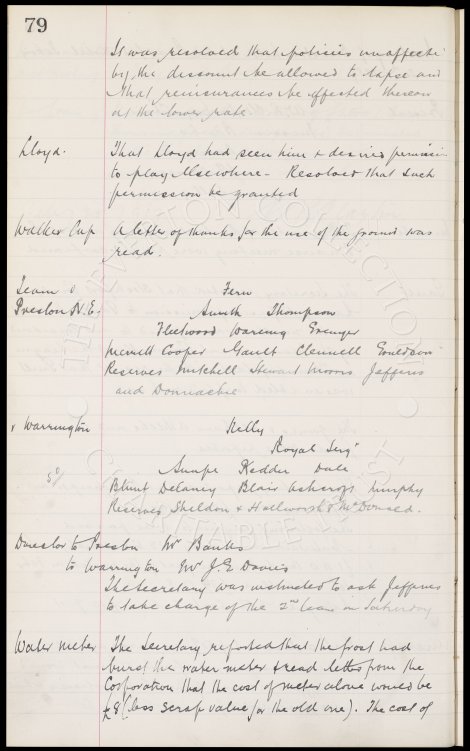 79
It was resolved that policies unaffected
by the discount be allowed to lapse and
that reinsurances be effected thereon
at the lower rate
Lloyd. That Lloyd had seen him & desired permission
to play elsewhere - Resolved that such
permission be granted
Walker Cup A letter of thanks for the use of the ground was
read.
Team v Fern
Preston N.E. Smith Thompson
Fleetwood Wareing Grenyer
Merrett Cooper Gault Clennell Donaldson
Reserves Mitchell Stewart Morris Jefferis
and Donnachie
v Warrington Kelly
Royal
Snape Kedder Dale
Blunt Delaney Blair Ashcroft Murphy
Reserves Sheldon & Hollworth & McDonald.
Director to Preston Mr Banks
to Warrington Mr J. E Davies
The Secretary was instructed to ask Jefferis
to take charge of the 2nd Team on Saturday
Water meter The Secretary reported that the frost had
burst the water meter & read letter from the
Corporation that the cost of meter alone would be
£8 (less scrap value for the old one). The cost of
THE EVERTON COLLECTION
CHARITABLE TRUST